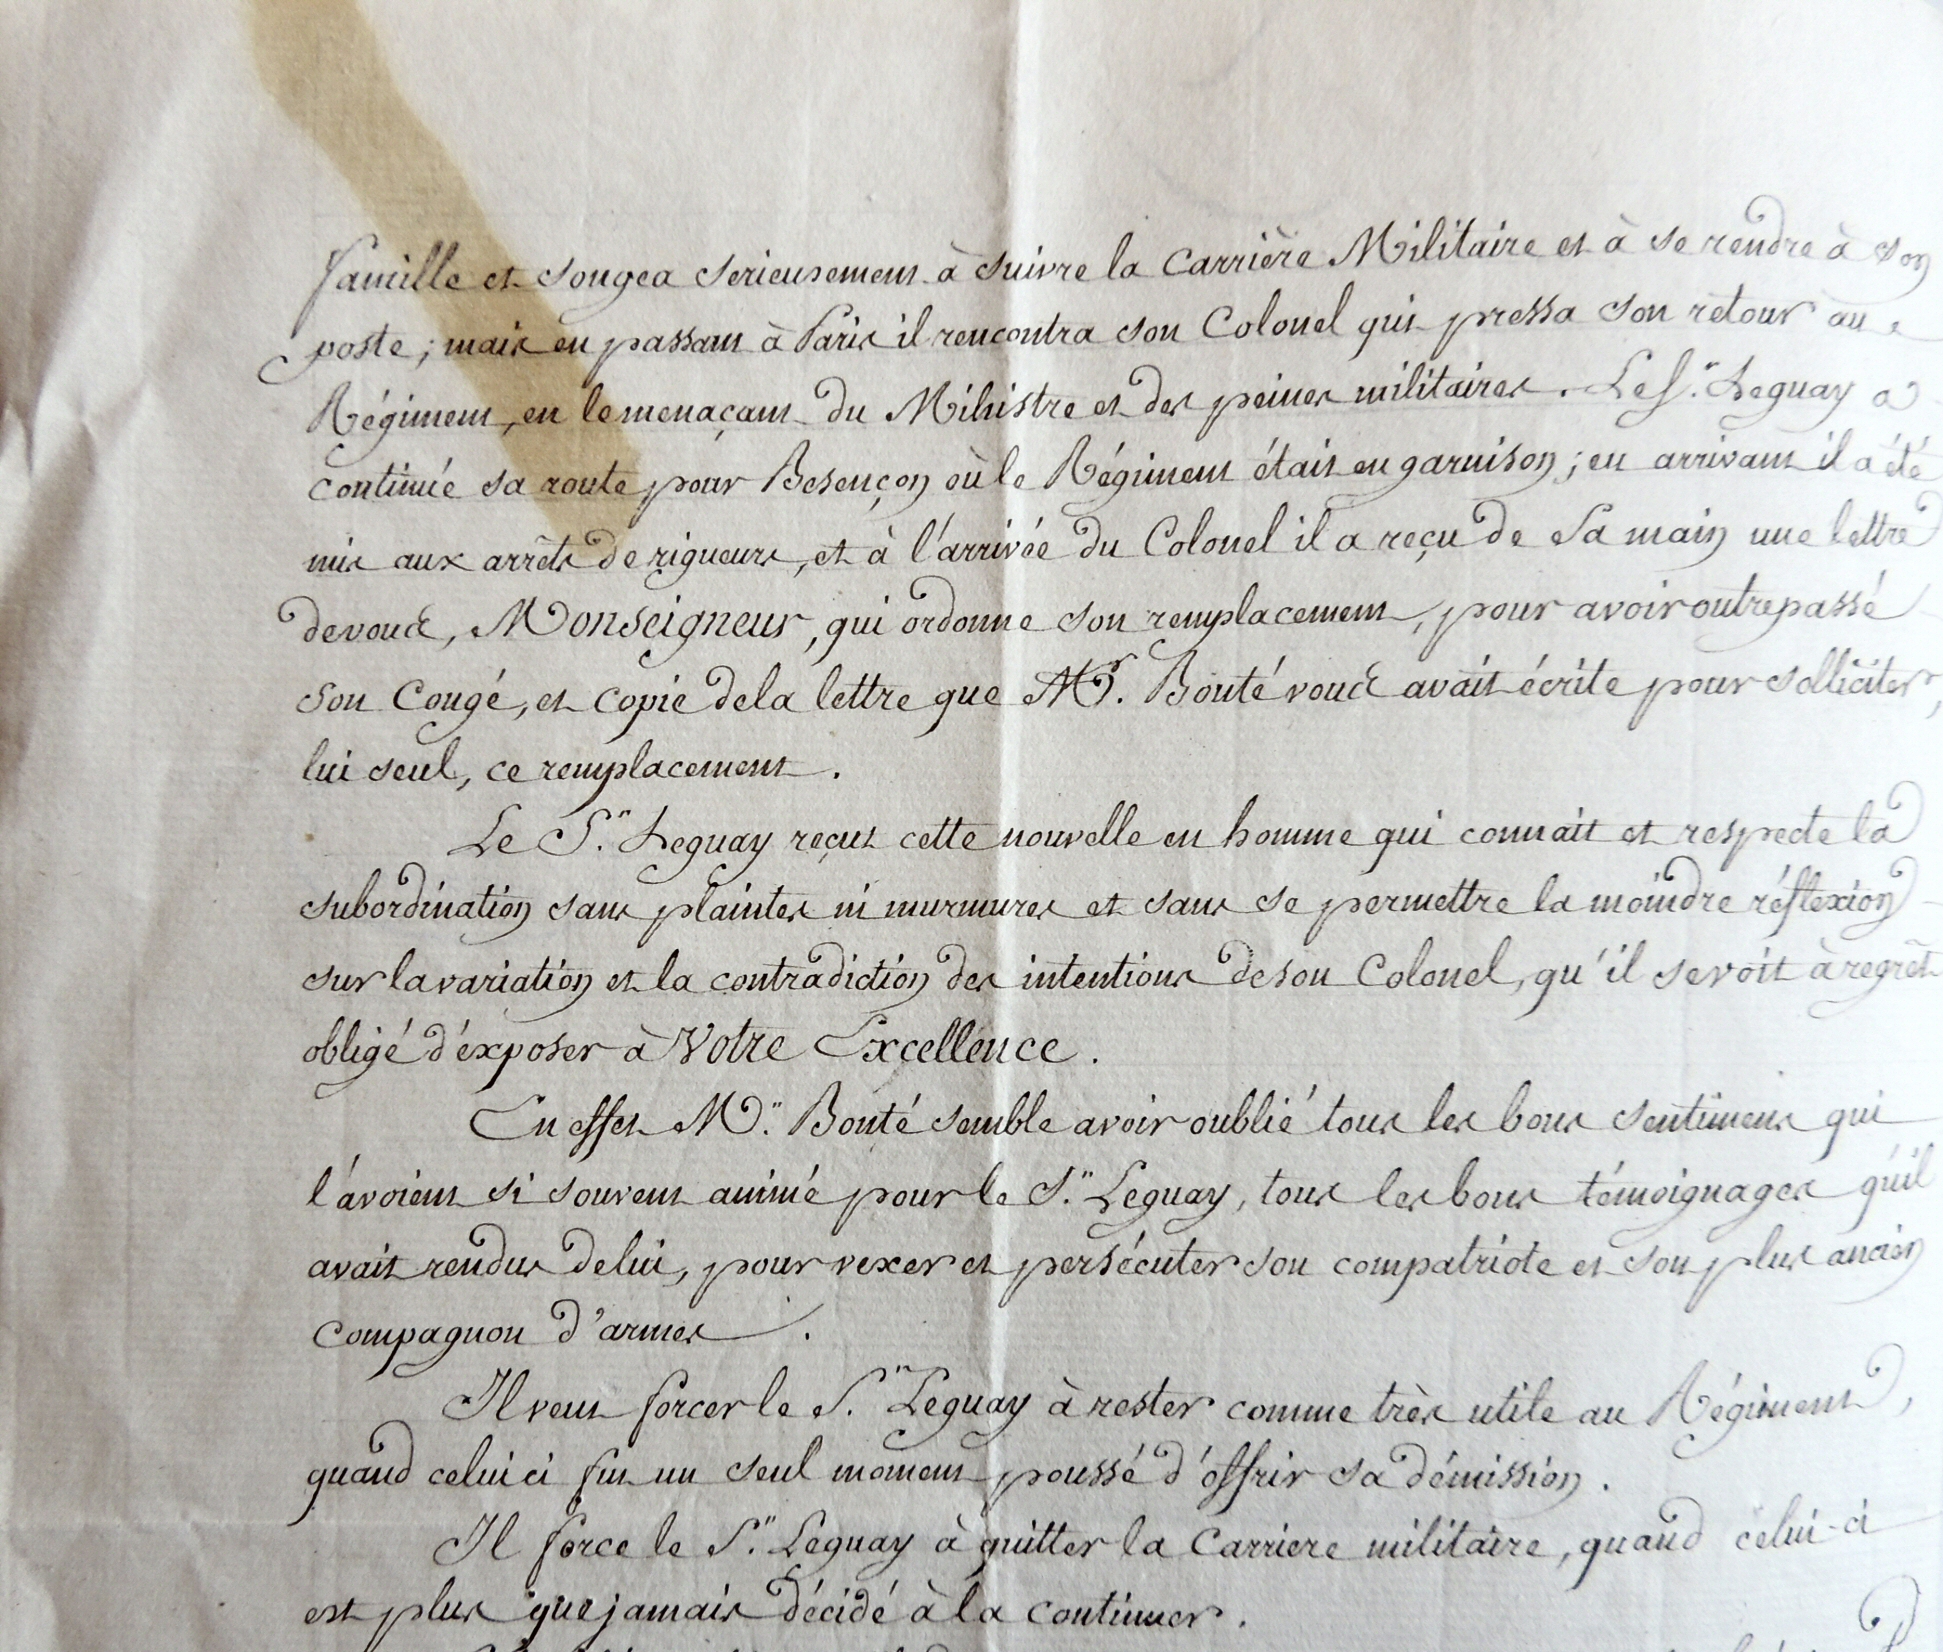 famille et songea serieusement à suivre la Carrière Militaire et à se rendre à son
poste; mais en passant à Paris il rencontra son Colonel qui pressa son retour au
Régiment, en le menaçant du Ministre et des peines militaires. Le Sr. Leguay a
continué sa route pour Besençon où le Régiment était en garnison; en arrivant il a été
mis aux arrêts de rigueurs, et à l'arrivée du Colonel il a reçu de Sa main une lettre
de vous, Monseigneur, qui ordonne son remplacement, pour avoir outrepassé
son Congé, et copie de la lettre que Mr. Bonté vous avait écrite pour solliciter,
lui seul, ce remplacement.
Le Sr. Leguay reçut cette nouvelle en homme qui connait et respecte la
subordination sans plaintes ni murmures et sans se permettre la moindre réflexion
sur la variation et la contradiction des intentions de son Colonel, qu'il se voit à regrèt
obligé d'éxposer à Votre Excellence.
En effet Mr. Bonté semble avoir oublié tous les bons sentimens qui
l'avoient si souvent animé pour le Sr. Leguay, tous les bons témoignages qu'il
avait rendus de lui, pour vexer et persécuter son compatriote et son plus ancien
compagnon d'armes.
Il veut forcer le Sr. Leguay à rester comme très utile au Régiment,
quand celui ci fut un seul moment poussé d'offrir sa démission.
Il force le Sr. Leguay à quitter la Carriere militaire, quand celui-ci
est plus que jamais décidé à la continuer.